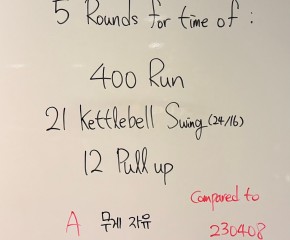 5 Rounds for time of :
400 Run
21 Kettlebell Swing (24/16)
12 Pull up
Compared to
A 무게 자유 230408